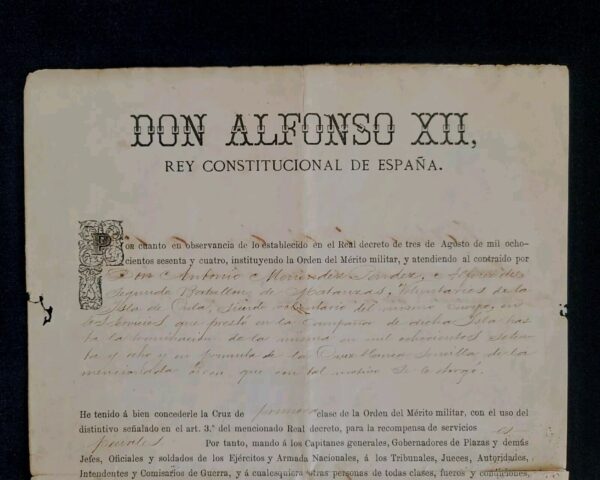 DON ALFONSO XII,
REY CONSTITUCIONAL DE ESPAÑA.
Por cuanto en observancia de lo establecido en el Real decreto de tres de Agosto de mil ocho-
cientos sesenta y cuatro, instituyendo la Orden del Mérito militar, y atendiendo al contraido por
Don Antonio Menendez Mendez, Alferez del
Segundo Batallon de Matanzas, Voluntarios de la
Isla de Cuba, siendo voluntario del mismo Cuerpo, en
los servicios que prestó en la Campaña de dicha Isla has
ta la terminacion de la misma en mil ochocientos seten
ta y ocho y en permuta de la Cruz blanca sencilla de la
mencionada orden que con tal motivo se le otorgó.
He tenido á bien concederle la Cruz de primera clase de la Orden del Mérito militar, con el uso del
distintivo señalado en el art. 3.º del mencionado Real decreto, para la recompensa de servicios es
peciales Por tanto, mando á los Capitanes generales, Gobernadores de Plazas y demás
Jefes, Oficiales y soldados de los Ejércitos y Armada Nacionales, á los Tribunales, Jueces, Autoridades,
Intendentes y Comisarios de Guerra, y á cualesquiera otras personas de todas clases, fueros y condiciones,